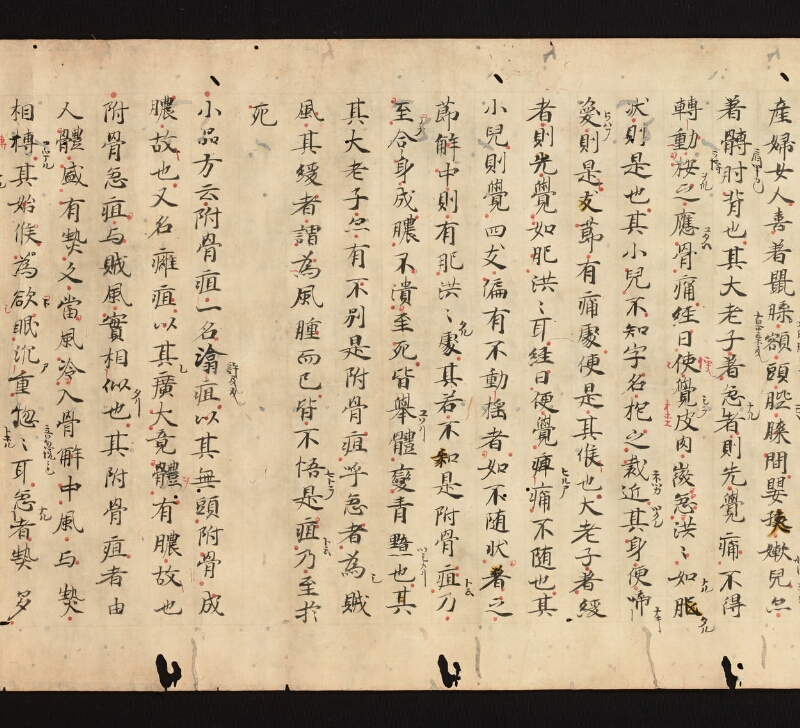 産婦女人喜著鼠膝額頭䏶膝間嬰孩嫩兒亦
著髆肘背也其大老子著急者則先覺痛不得
轉動桉之應骨痛經日便覺皮肉㴠急洪〻如肥
狀則是也其小兒不知字名抱之裁近其身便啼
喚則是支莭有痛處便是其候也大老子著緩
者則先覺如肥洪〻耳經日便覺痺痛不随也其
小兒則覺四支偏有不動揺者如不随狀著之
莭解中則有肥洪〻處其若不知是附骨疽乃
至合身成膿不潰至死皆舉體變青黯也其
其大老子亦有不別是附骨疽乎急者為賊
風其緩者謂為風腫而已皆不悟是疽乃至於
死
小品方云附骨疽一名瀹疽以其無頭附骨成
膿故也又名癰疽以其廣大竟體有膿故也
附骨急疽与賊風實相似也其附骨疽者由
人體盛有熱久當風冷入骨解中風与熱
相搏其始候為欲眠沉重惚〻耳急者熱多